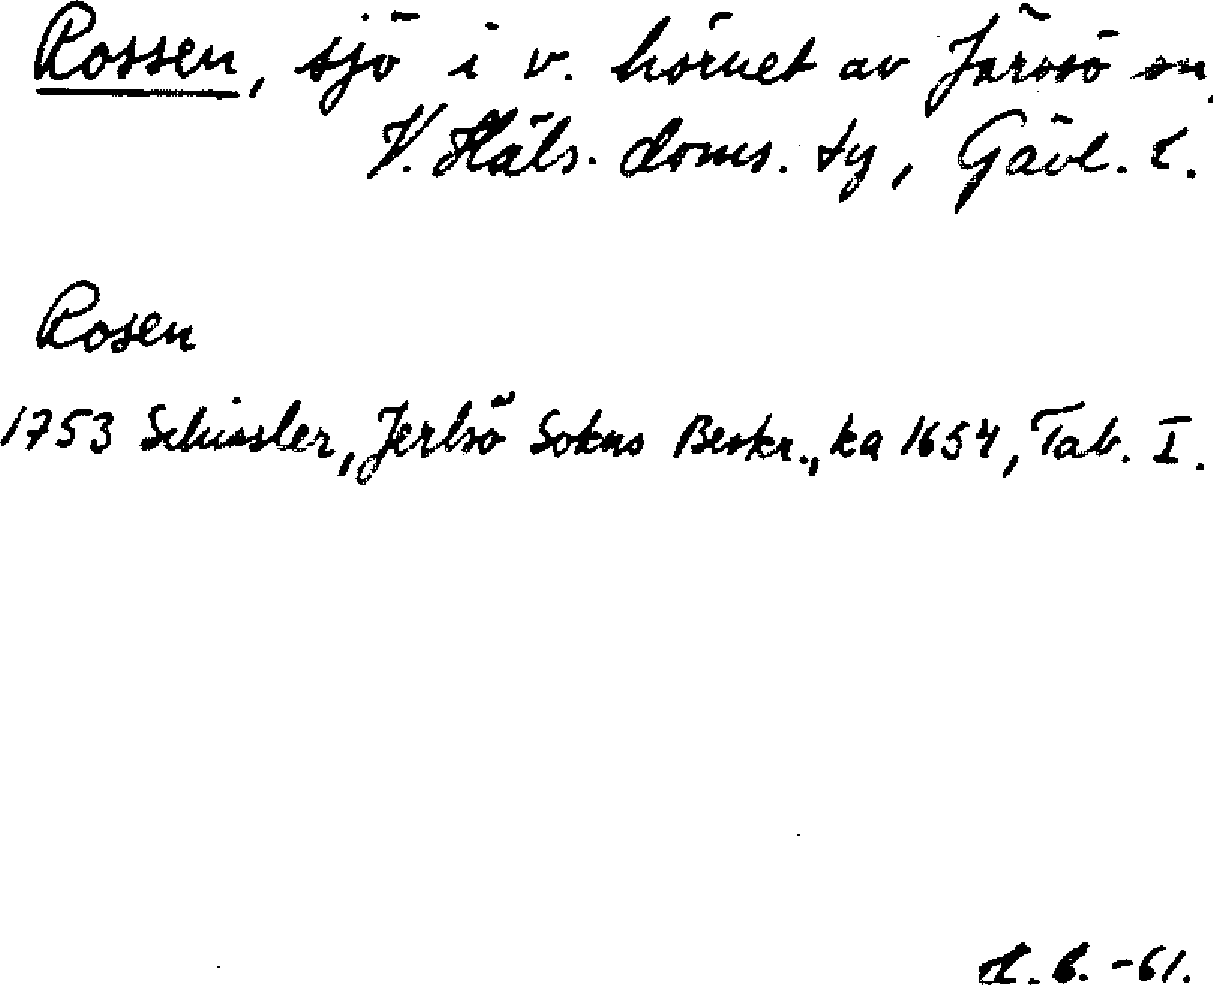 Rossen, sjö i v. hörnet av Järvsö sn,
V. Häls. doms. tg, Gävl. l.
Rosen
1753 Schissler, Jerlsö Sokns Beskr., ka 1654, Tab. I.
-61.